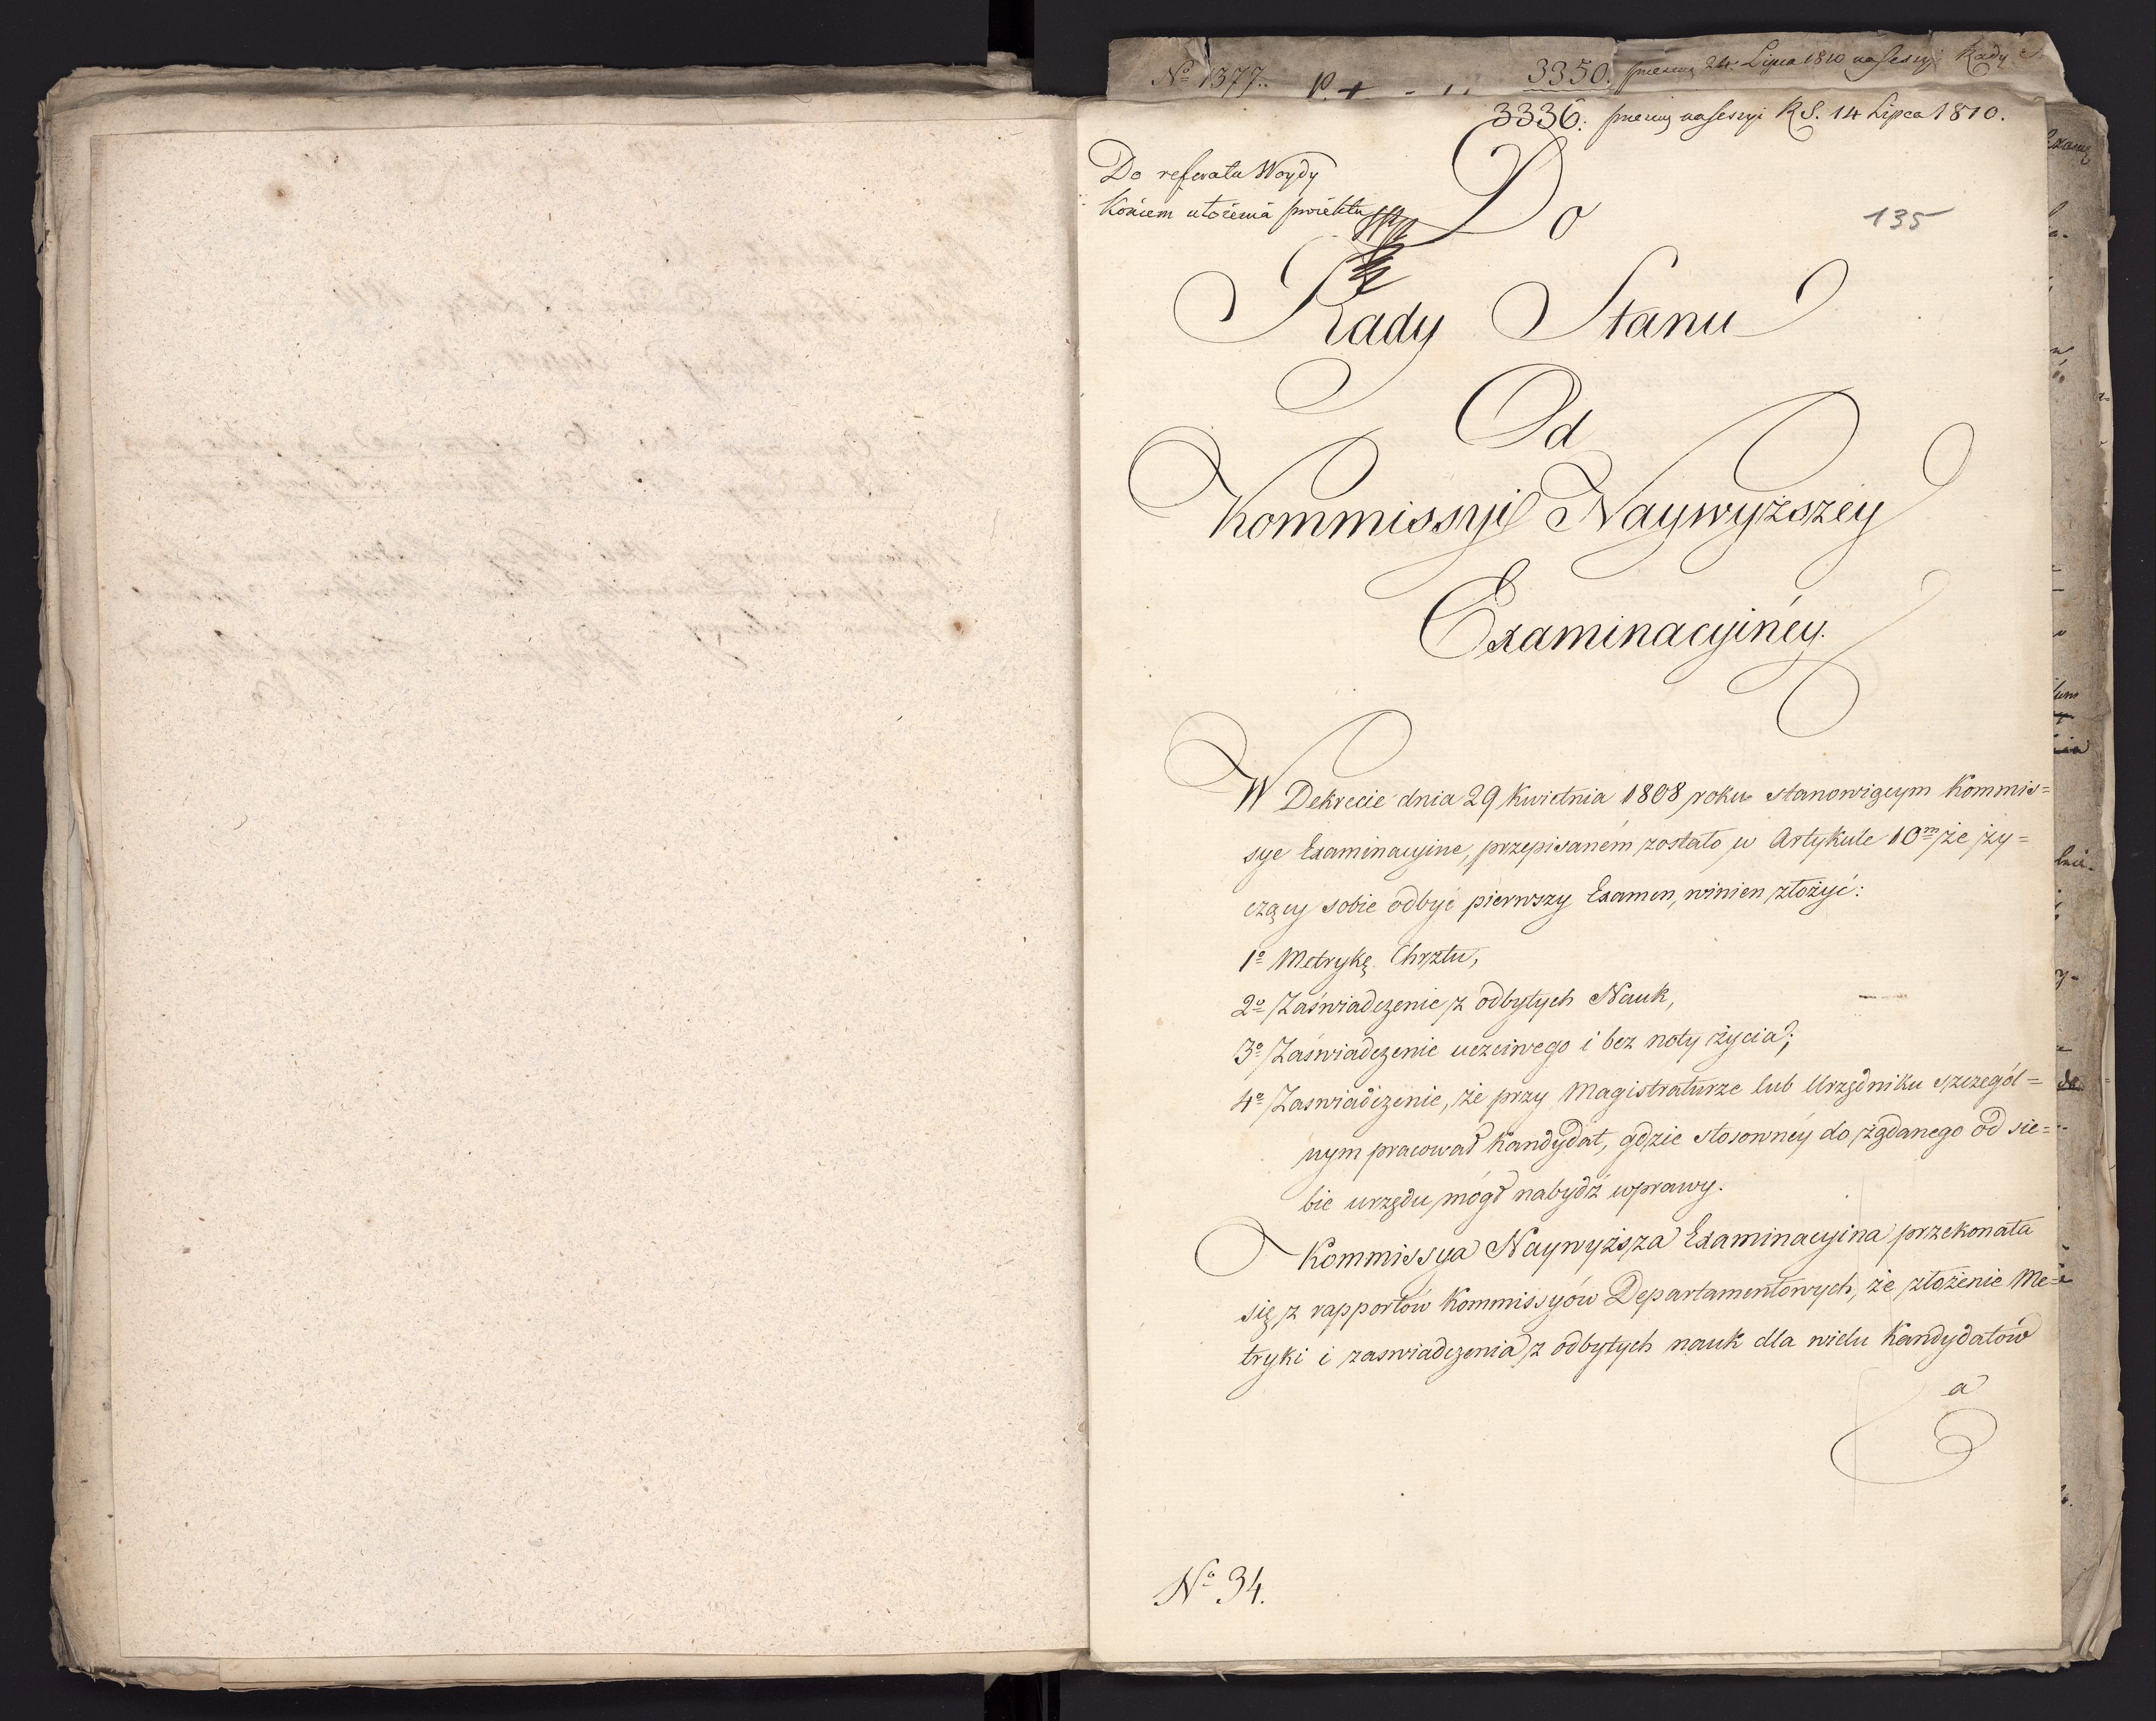 No 1377.
3350. 24 Lipca 1810 na Sessyi Rady
3336. na Sessyi RS. 14 Lipca 1810.
Do referatu Woydy
Końcem ułożenia proiektu
Do
135
Rady Stanu
Od
Kommissyi Naywyższey
Examinacyiney.
W Dekrecie dnia 29 Kwietnia 1808 roku stanowiącym Kommis=
sye Examinacyine, przepisaném zostało w Artykule 10m że ży=
czący sobie odbyć pierwszy Examen, winien złożyć:
1o Metrykę Chrztu,
2o Zaświadczenie z odbytych Nauk,
3o Zaświadczenie uczciwego i bez noty życia;
4o Zaswiadczenie, że przy Magistraturze lub Urzędniku szczegól=
nym pracował Kandydat, gdzie stosownéy do żądanego od sie=
bie urzędu mógł nabydź wprawy.
Kommissya Naywyższa Examinacyina przekonała
się z rapportów Kommissyów Departamentowych, że złożenie Me=
tryki i zaswiadczenia z odbytych nauk dla wielu Kandydatów
a
No 34.